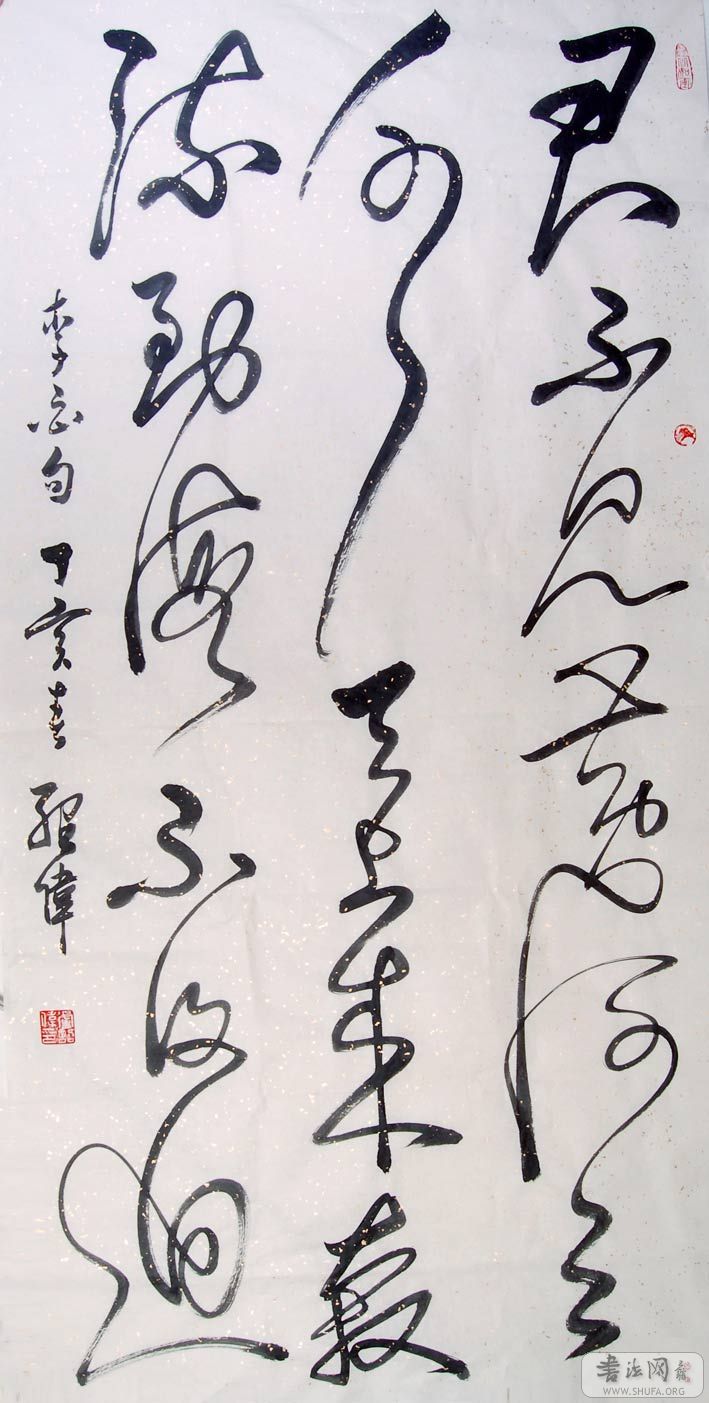 君不見黄河之
水天上来奔
流到海不復迴
李白句 丁亥春 偉
書法网
WWW.SHUFA.ORG